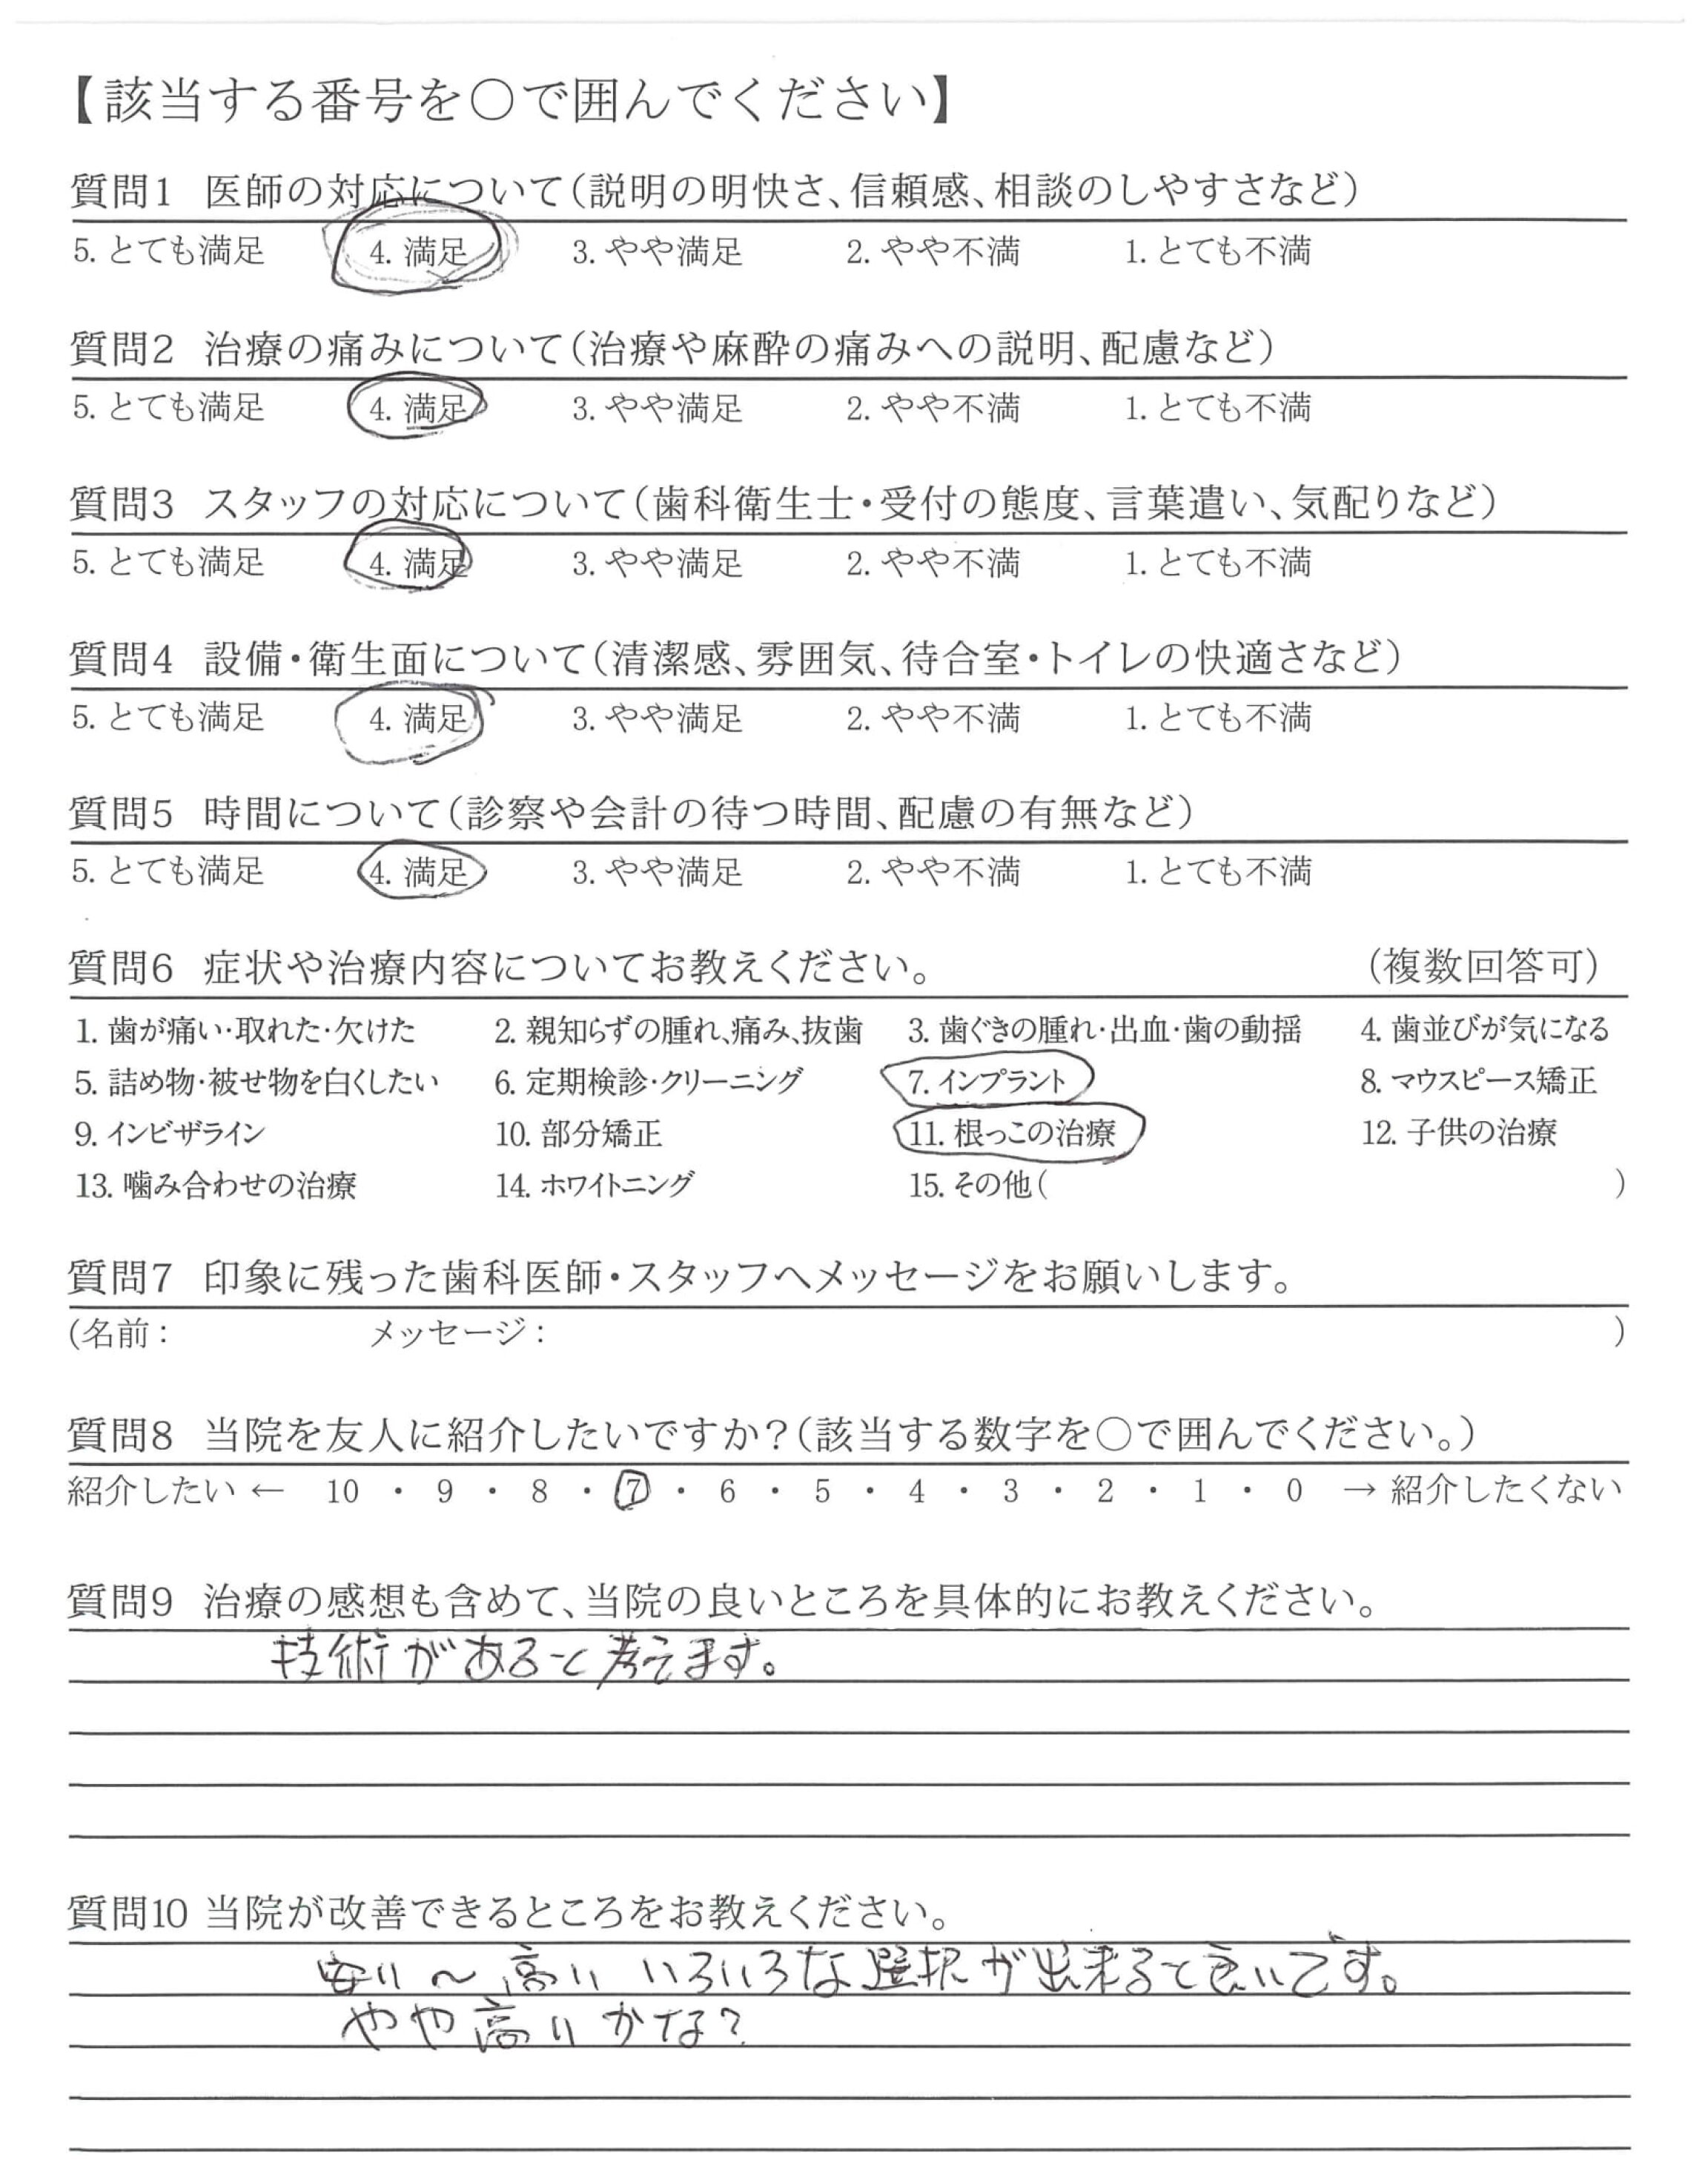 【該当する番号を○で囲んでください】
質問1 医師の対応について(説明の明快さ、信頼感、相談のしやすさなど)
5. とても満足 4. 満足 3. やや満足 2. やや不満 1. とても不満
質問2 治療の痛みについて(治療や麻酔の痛みへの説明、配慮など)
5. とても満足 4. 満足 3. やや満足 2. やや不満 1. とても不満
質問3 スタッフの対応について(歯科衛生士・受付の態度、言葉遣い、気配りなど)
5. とても満足 4. 満足 3. やや満足 2. やや不満 1. とても不満
質問4 設備・衛生面について(清潔感、雰囲気、待合室・トイレの快適さなど)
5. とても満足 4. 満足 3. やや満足 2. やや不満 1. とても不満
質問5 時間について(診察や会計の待つ時間、配慮の有無など)
5. とても満足 4. 満足 3. やや満足 2. やや不満 1. とても不満
質問6 症状や治療内容についてお教えください。 (複数回答可)
1. 歯が痛い・取れた・欠けた 2. 親知らずの腫れ、痛み、抜歯 3. 歯ぐきの腫れ・出血・歯の動揺 4. 歯並びが気になる
5. 詰め物・被せ物を白くしたい 6. 定期検診・クリーニング 7. インプラント 8. マウスピース矯正
9. インビザライン 10. 部分矯正 11. 根っこの治療 12. 子供の治療
13. 噛み合わせの治療 14. ホワイトニング 15. その他( )
質問7 印象に残った歯科医師・スタッフへメッセージをお願いします。
(名前： メッセージ： )
質問8 当院を友人に紹介したいですか？(該当する数字を○で囲んでください。)
紹介したい ← 10 ・ 9 ・ 8 ・ 7 ・ 6 ・ 5 ・ 4 ・ 3 ・ 2 ・ 1 ・ 0 → 紹介したくない
質問9 治療の感想も含めて、当院の良いところを具体的にお教えください。
技術があると考えます。
質問10 当院が改善できるところをお教えください。
安い〜高い いろいろな選択が出来ると良いです。
やや高いかな？